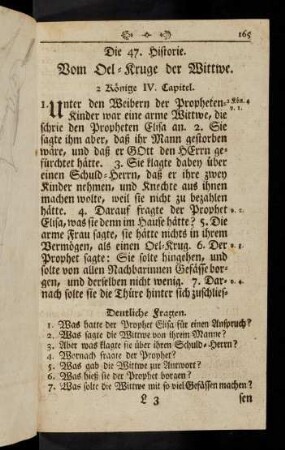 165
Die 47. Historie.
Vom Oel-Kruge der Wittwe.
2 Könige IV. Capitel.
1. Unter den Weibern der Propheten- 2 Kön. 4
Kinder war eine arme Wittwe, die v. 1.
schrie den Propheten Elisa an. 2. Sie
sagte ihm aber, daß ihr Mann gestorben
wäre, und daß er GOtt den HErrn ge-
fürchtet hätte. 3. Sie klagte dabey über
einen Schuld-Herrn, daß er ihre zwey
Kinder nehmen, und Knechte aus ihnen
machen wolte, weil sie nicht zu bezahlen
hätte. 4. Darauf fragte der Prophet v. 2.
Elisa, was sie denn im Hause hätte? 5. Die
arme Frau sagte, sie hätte nichts in ihrem
Vermögen, als einen Oel-Krug. 6. Der v. 3.
Prophet sagte: Sie solte hingehen, und
solte von allen Nachbarinnen Gefässe bor-
gen, und derselben nicht wenig. 7. Dar- v. 4.
nach solte sie die Thüre hinter sich zuschlies-
Deutliche Fragten.
1. Was hatte der Prophet Elisa für einen Anspruch?
2. Was sagte die Wittwe von ihrem Manne?
3. Aber was klagte sie über ihren Schuld-Herrn?
4. Wornach fragte der Prophet?
5. Was gab die Wittwe zur Antwort?
6. Was hieß sie der Prophet borgen?
7. Was solte die Wittwe mit so viel Gefässen machen?
L 3 sen